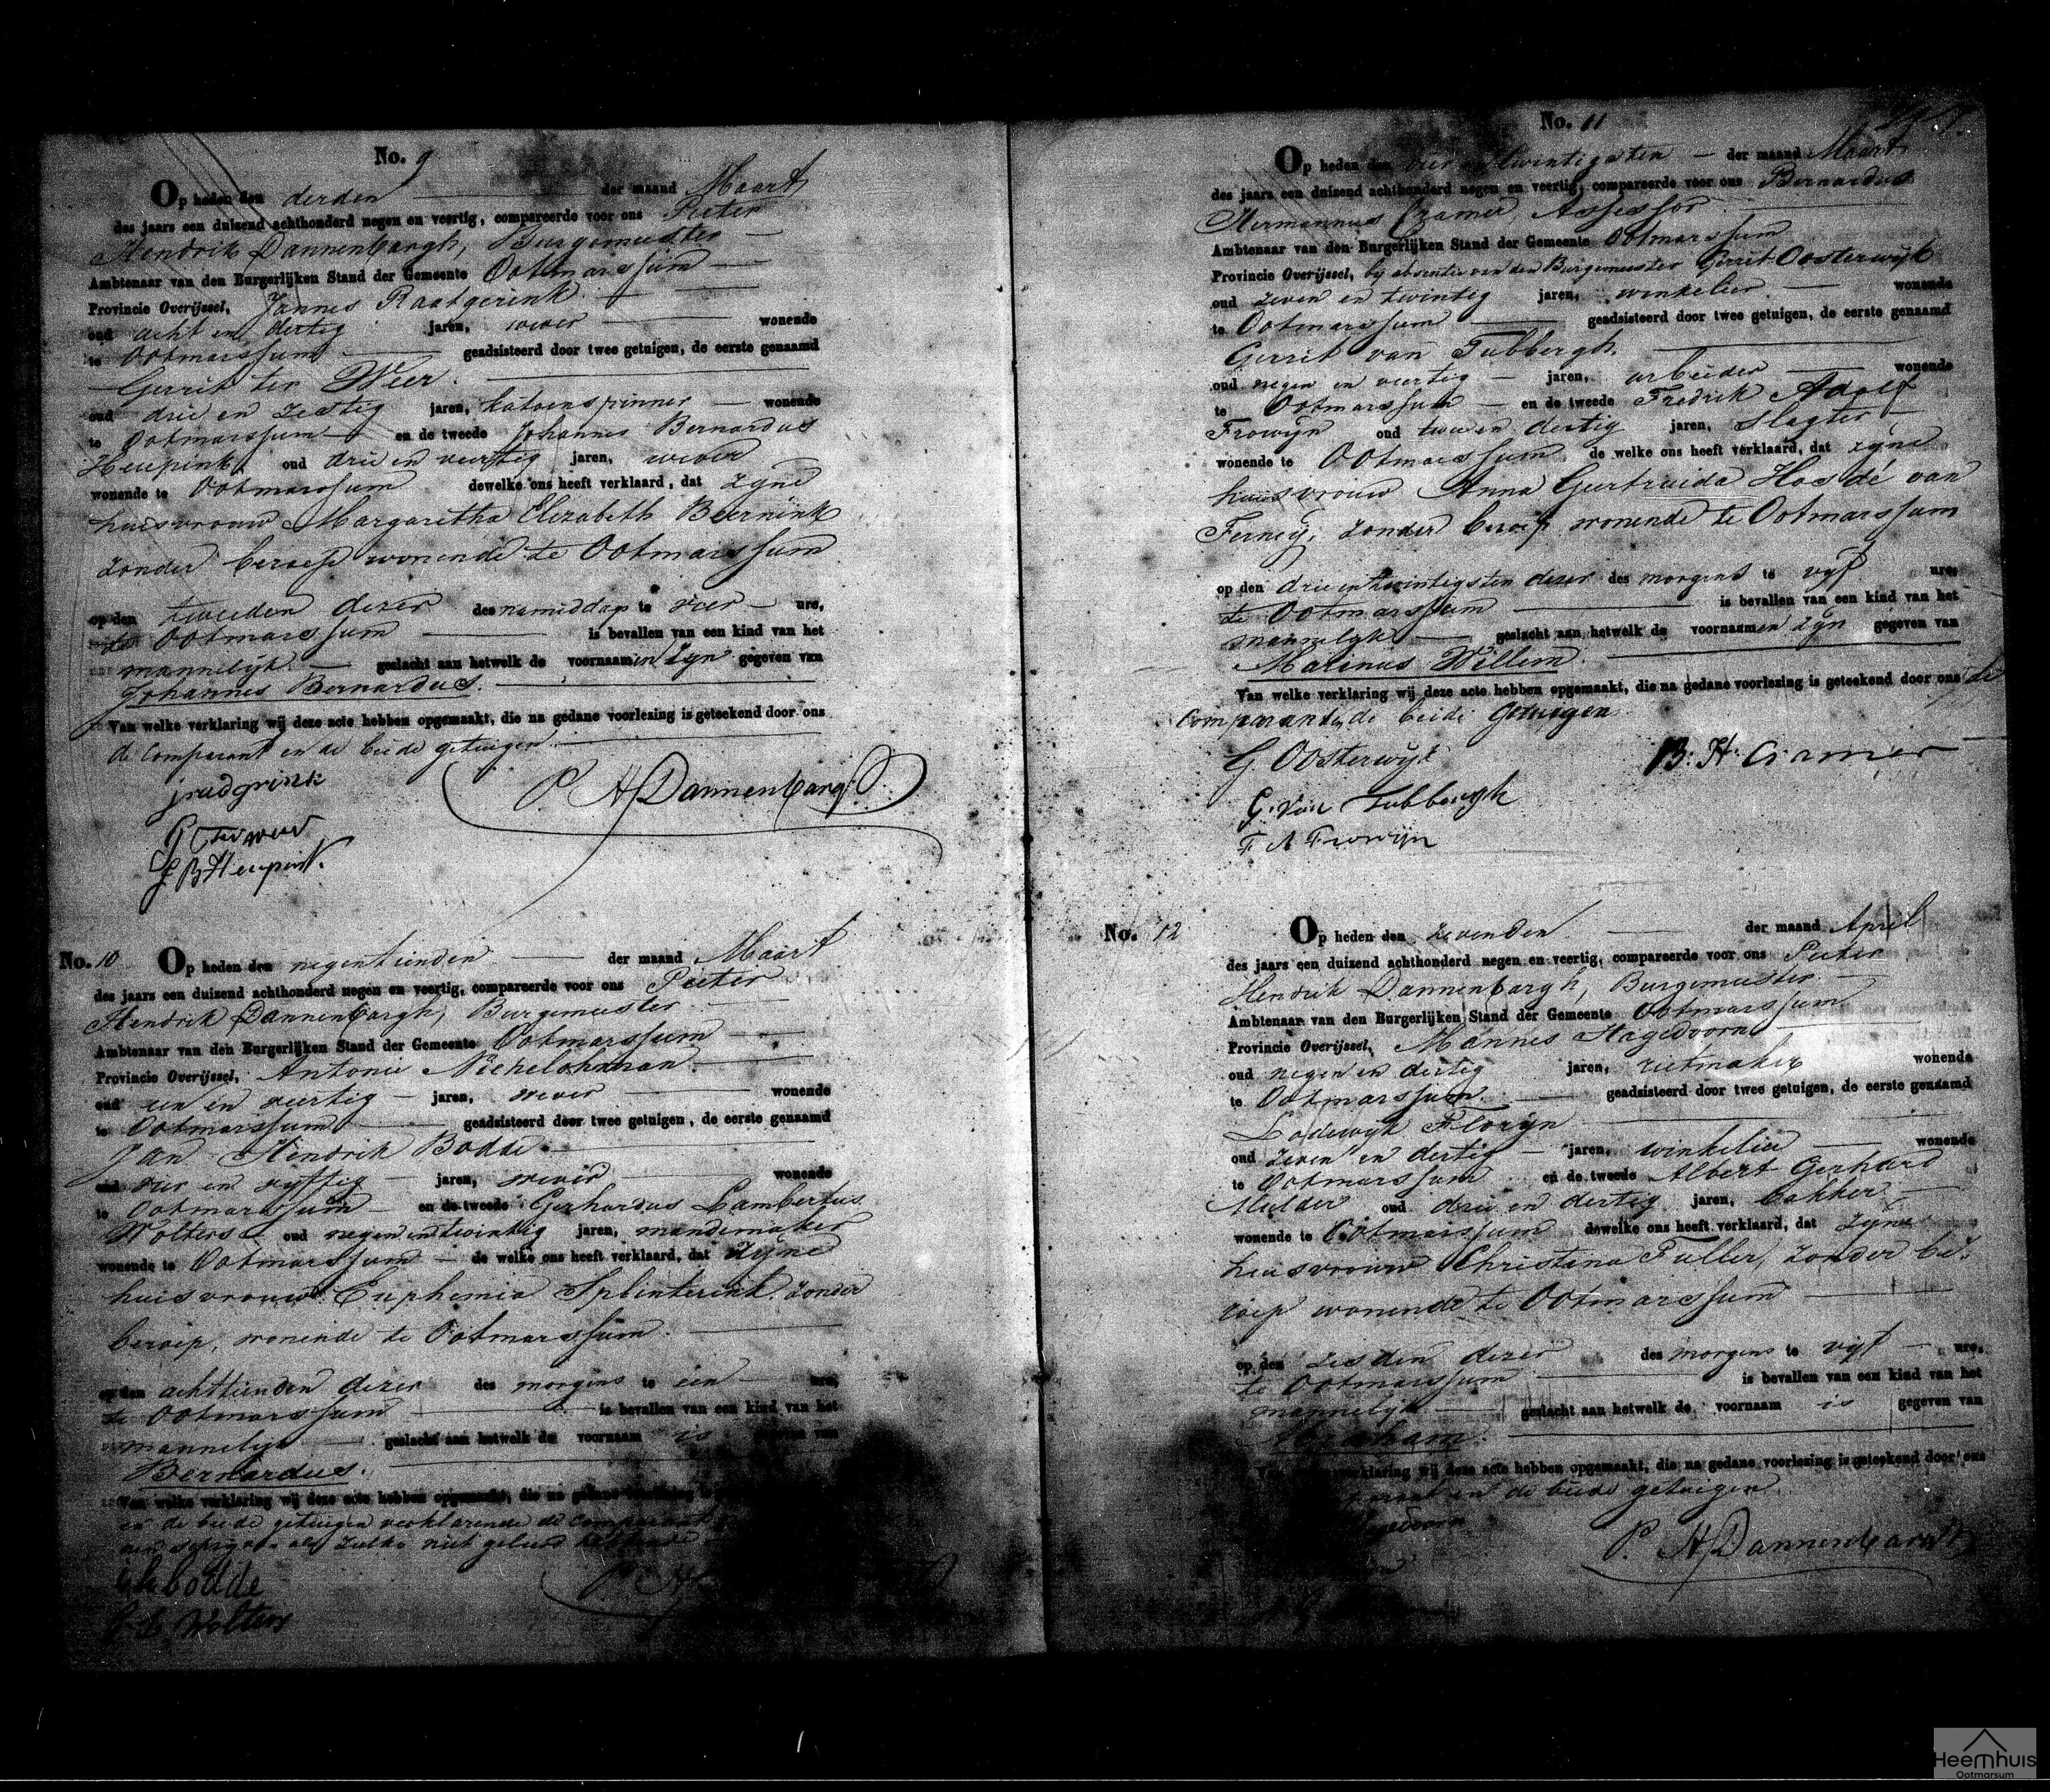 No. 9
Op heden den derden der maand Maart
des jaars een duizend achthonderd negen en veertig, compareerde voor ons Pieter
Hendrik Dannenbargh, Burgemeester
Ambtenaar van den Burgerlijken Stand der Gemeente Ootmarssum
Provincie Overijssel, Jannes Raatgerink
oud acht en dertig jaren, wever wonende
te Ootmarssum geadsisteerd door twee getuigen, de eerste genaamd
Gerrit ter Weer.
oud drie en zestig jaren, katoenspinner wonende
te Ootmarssum en de tweede Johannes Bernardus
Heupink oud drie en veertig jaren, wever
wonende te Ootmarssum dewelke ons heeft verklaard, dat zyne
huisvrouw Margaretha Elizabeth Beernink
zonder beroep wonende te Ootmarssum
op den tweeden dezer des namiddags te vier ure,
te Ootmarssum is bevallen van een kind van het
mannelijk geslacht aan hetwelk de voornaamen zyn gegeven van
Johannes Bernardus.
Van welke verklaring wij deze acte hebben opgemaakt, die na gedane voorlezing is geteekend door ons
de Comparant en de beide getuigen.
P. H. Dannenbargh
G ter weer
J B Heupink.
No. 10 Op heden den negentienden der maand Maart
des jaars een duizend achthonderd negen en veertig, compareerde voor ons Pieter
Hendrik Dannenbargh, Burgemeester
Ambtenaar van den Burgerlijken Stand der Gemeente Ootmarssum
Provincie Overijssel, Antonie
oud een en veertig jaren, wever wonende
te Ootmarssum geadsisteerd door twee getuigen, de eerste genaamd
Jan Hendrik Bodde
oud vier en vyftig jaren, wever wonende
te Ootmarssum en de tweede Gerhardus Lambertus
Wolters oud negen en twintig jaren, mandemaker
wonende te Ootmarssum de welke ons heeft verklaard, dat zyne
huisvrouw Euphemia Splinterink zonder
beroep, wonende te Ootmarssum.
op den achttienden dezer des morgens te een ure,
te Ootmarssum is bevallen van een kind van het
mannelyk geslacht aan hetwelk de voornaam is gegeven van
Bernardus.
Van welke verklaring wij deze acte hebben opgemaakt, die na gedane
en de beide getuigen verklarende de Comparant
als zulks niet geleerd hebbende
bodde
G. L. Wolters
No. 11
Op heden den vier en twintigsten der maand Maart
des jaars een duizend achthonderd negen en veertig, compareerde voor ons Bernardus
Hermannus Cramer, Assessor
Ambtenaar van den Burgerlijken Stand der Gemeente Ootmarssum
Provincie Overijssel, by absentie van den Burgemeester Gerrit Oosterwijk
oud zeven en twintig jaren, winkelier wonende
te Ootmarssum geadsisteerd door twee getuigen, de eerste genaamd
Gerrit van Tubbergh.
oud negen en veertig jaren, arbeider wonende
te Ootmarssum en de tweede Fredrik Adolf
Frowyn oud twee en dertig jaren, slagter
wonende te Ootmarssum de welke ons heeft verklaard, dat zyne
huisvrouw Anna Geertruida Hosdé van
Ferney, zonder beroep wonende te Ootmarssum
op den drie en twintigsten dezer des morgens te vyf ure,
te Ootmarssum is bevallen van een kind van het
mannelyk geslacht aan hetwelk de voornaamen zyn gegeven van
Marinus Willem.
Van welke verklaring wij deze acte hebben opgemaakt, die na gedane voorlezing is geteekend door ons de
Comparant en de beide Getuigen
G. Oosterwijk B. H. Cramer
G. van Tubbergh
F A Frowijn
No. 12 Op heden den zevenden der maand April
des jaars een duizend achthonderd negen en veertig, compareerde voor ons Pieter
Hendrik Dannenbargh, Burgemeester
Ambtenaar van den Burgerlijken Stand der Gemeente Ootmarssum
Provincie Overijssel, Mannes Hagedoorn
oud negen en dertig jaren, rietmaker wonende
te Ootmarssum. geadsisteerd door twee getuigen, de eerste genaamd
Lodewyk Floryn
oud zeven en dertig jaren, winkelier wonende
te Ootmarssum en de tweede Albert Gerhard
Mulder oud drie en dertig jaren, bakker
wonende te Ootmarssum dewelke ons heeft verklaard, dat zyne
huisvrouw Christina Fuller, zonder be-
roep wonende te Ootmarssum
op den zesden dezer des morgens te vyf ure,
te Ootmarssum is bevallen van een kind van het
mannelyk geslacht aan hetwelk de voornaam is gegeven van
Abraham.
verklaring wij deze acte hebben opgemaakt, die na gedane voorlezing is geteekend door ons
en de beide getuigen.
P. H. Dannenbargh
Heemhuis
Ootmarsum